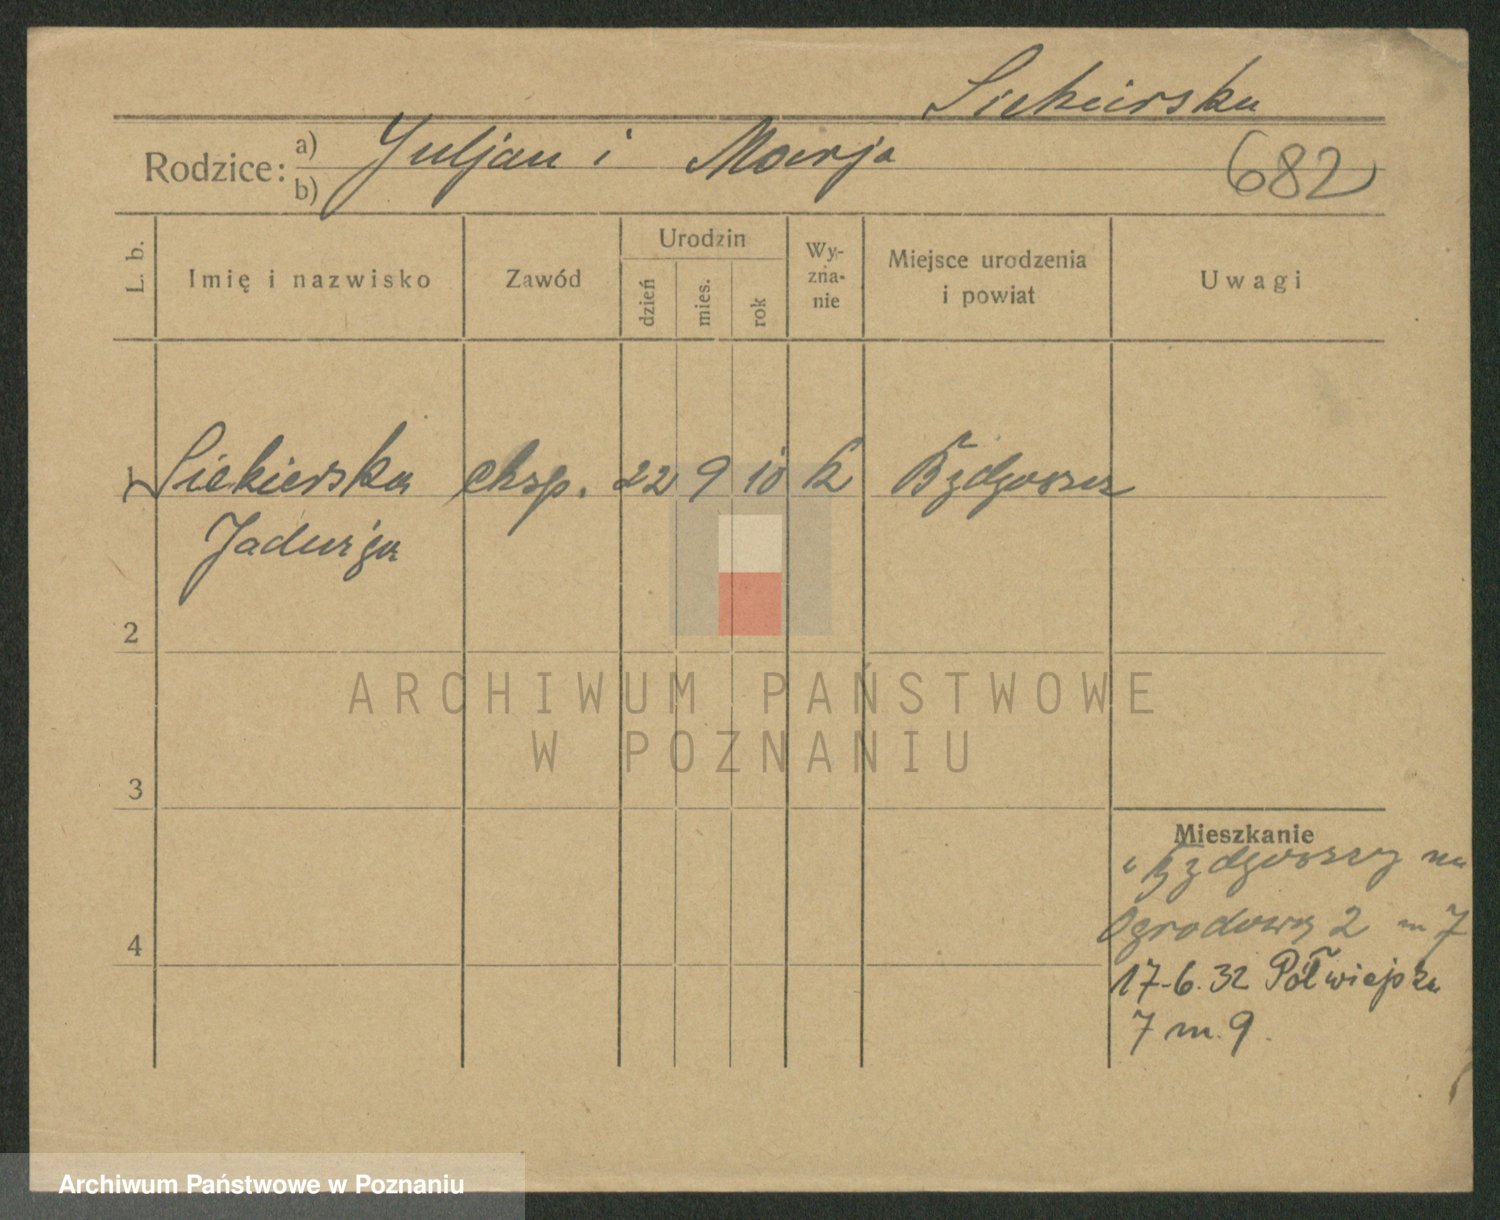 Siekierska
Rodzice: a) Juljan i Marja
b)
682
L. b. Imię i nazwisko Zawód Urodzin dzień mies. rok Wyznanie Miejsce urodzenia i powiat Uwagi
1 Siekierska eksp. 22 9 10 k Bydgoszcz
Jadwiga
2
ARCHIWUM PAŃSTWOWE
W POZNANIU
3
Mieszkanie
Bydgoszczy
Ogrodowa 2 m 7
4
17-6.32 Półwiejska
7 m. 9.
Archiwum Państwowe w Poznaniu